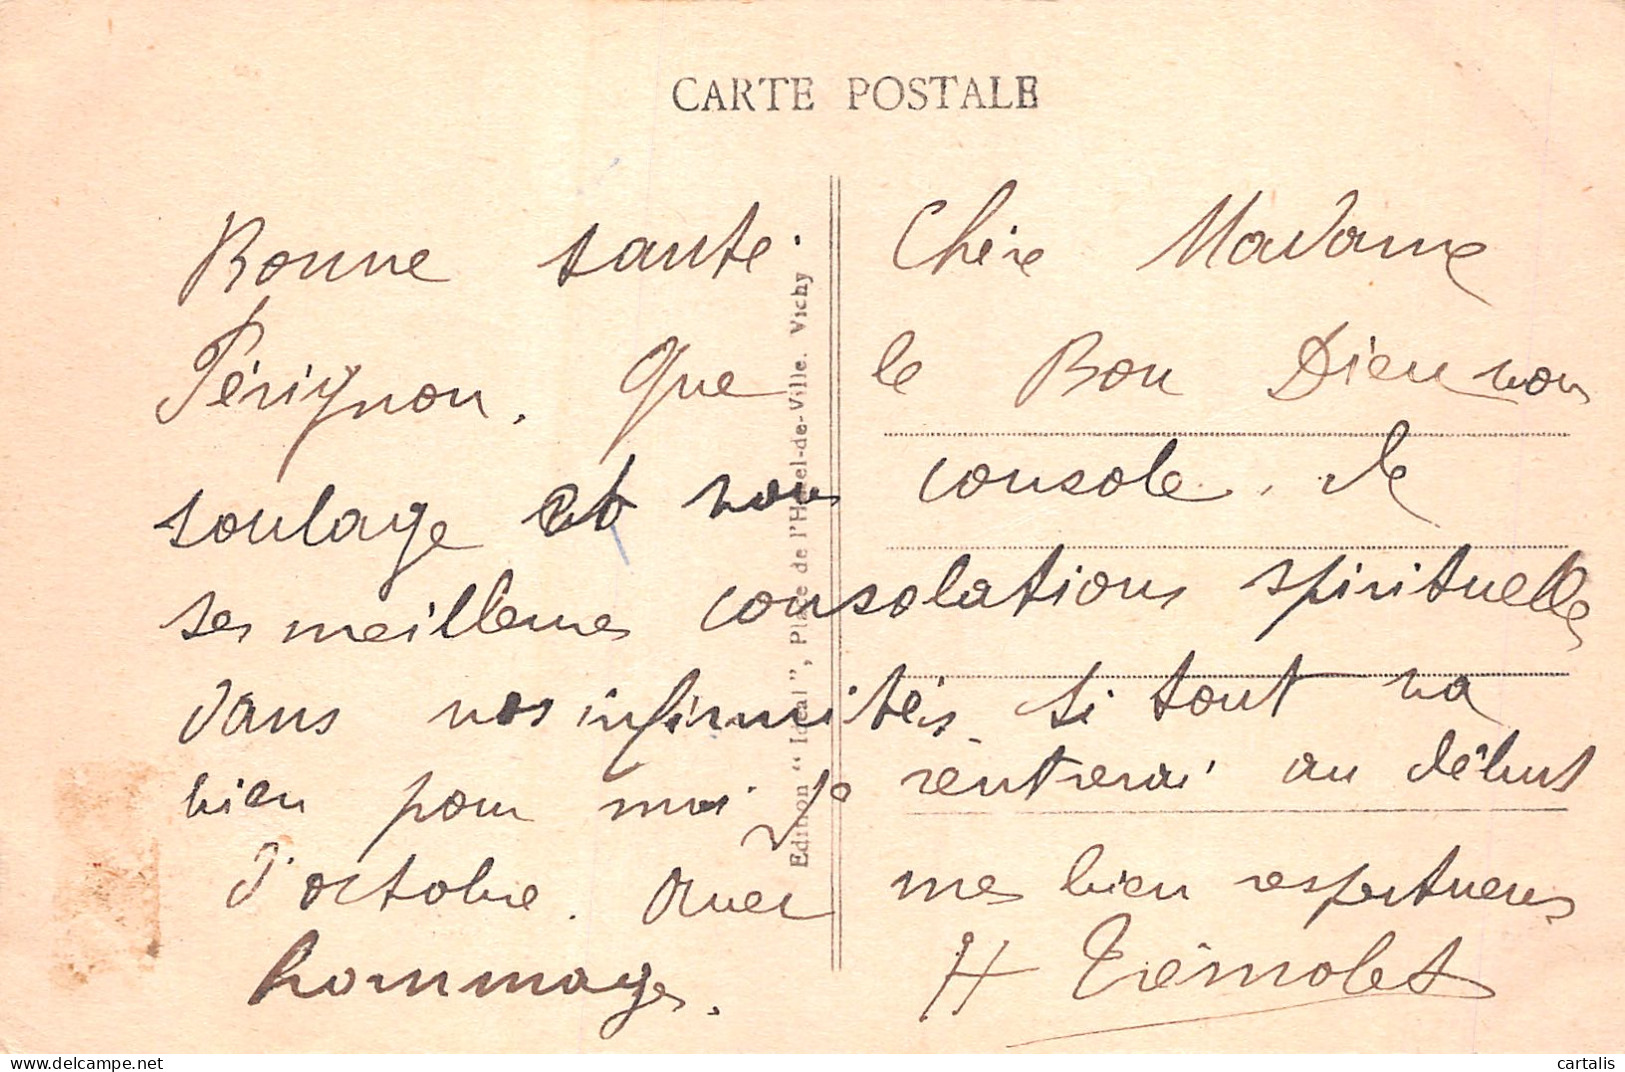 CARTE POSTALE
Bonne santé. Chère Madame
Pérignon. Que le Bon Dieu vous
soulage et vous console. de
ses meilleures consolations spirituelles
dans vos infirmités. Si tout va
bien pour moi je rentrerai au début
d'octobre. avec mes bien respectueux
hommages. H Trémolet
Edition "Idéal", Place de l'Hôtel-de-Ville. Vichy
cartalis